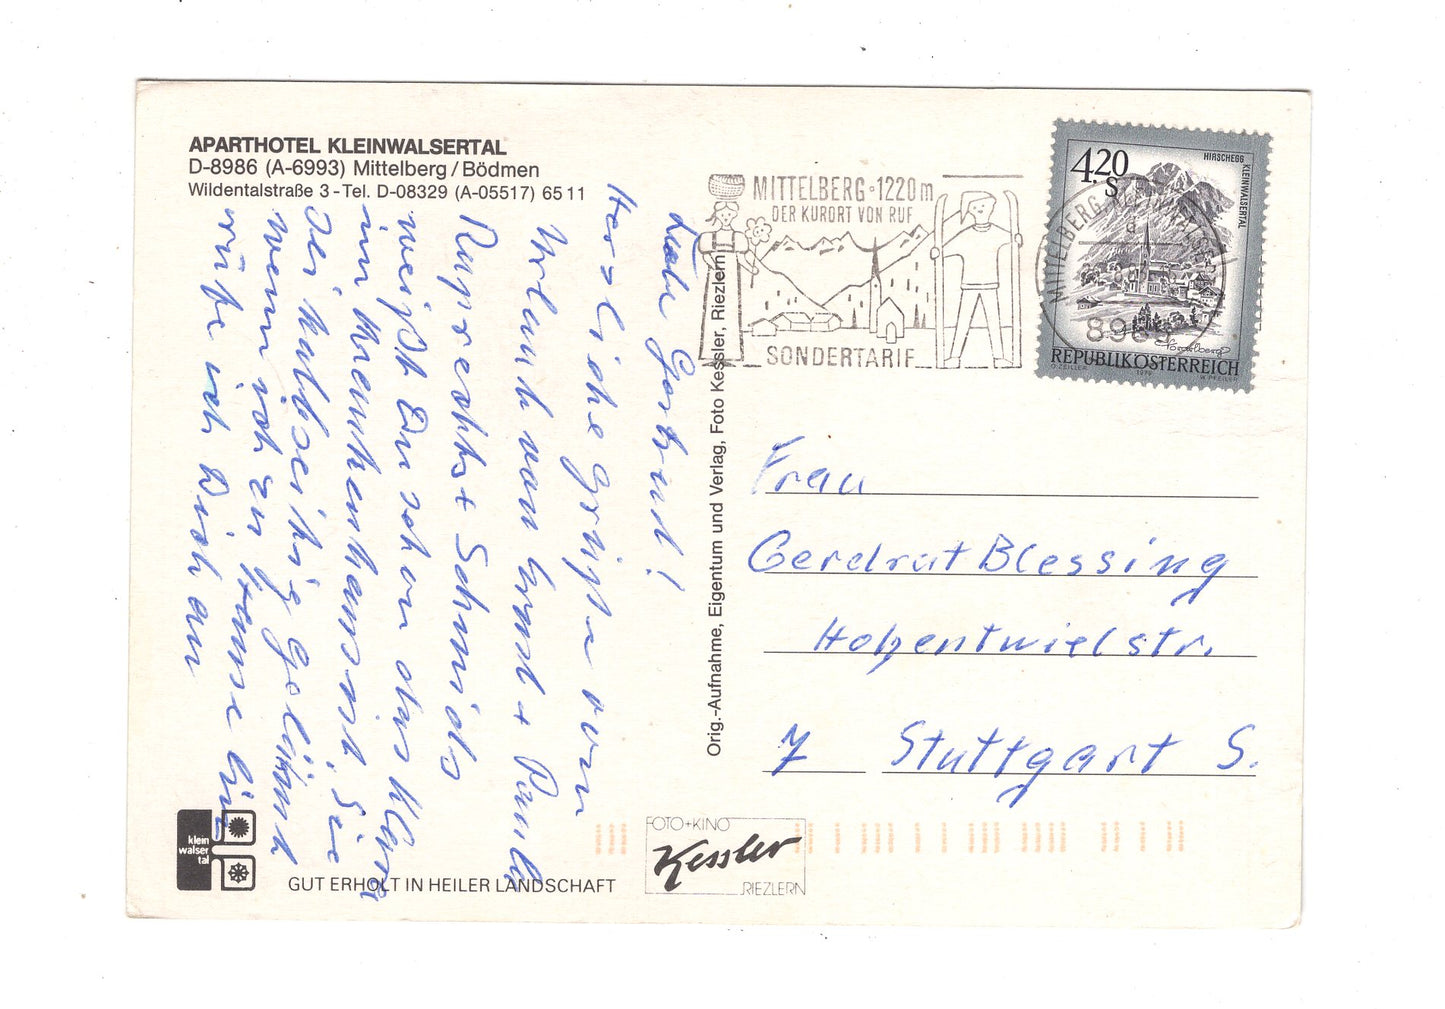 APARTHOTEL KLEINWALSERTAL
D-8986 (A-6993) Mittelberg/Bödmen
Wildentalstraße 3-Tel. D-08329 (A-05517) 6511
Liebe Gertrud!
Herzliche Grüße vom
Urlaub von Ernst + Paula
Ruprecht + Schmids
weißt Du schon das Klara
im Krankenhaus ist, Sie
ist halbseitig gelähmt
wenn ich zu Hause bin
rufe ich Dich an
klein
walser
tal
GUT ERHOLT IN HEILER LANDSCHAFT
Orig.-Aufnahme, Eigentum und Verlag, Foto Kessler, Riezlern
FOTO+KINO
Kessler
RIEZLERN
MITTELBERG·1220m
DER KURORT VON RUF
SONDERTARIF
MITTELBERG
a
4,20
S
HIRSCHEGG
KLEINWALSERTAL
Vorarlberg
REPUBLIK ÖSTERREICH
O. ZEILLER 1979 W. PFEILER
Frau
Gerdrut Blessing
Hohentwielstr.
7 Stuttgart S.